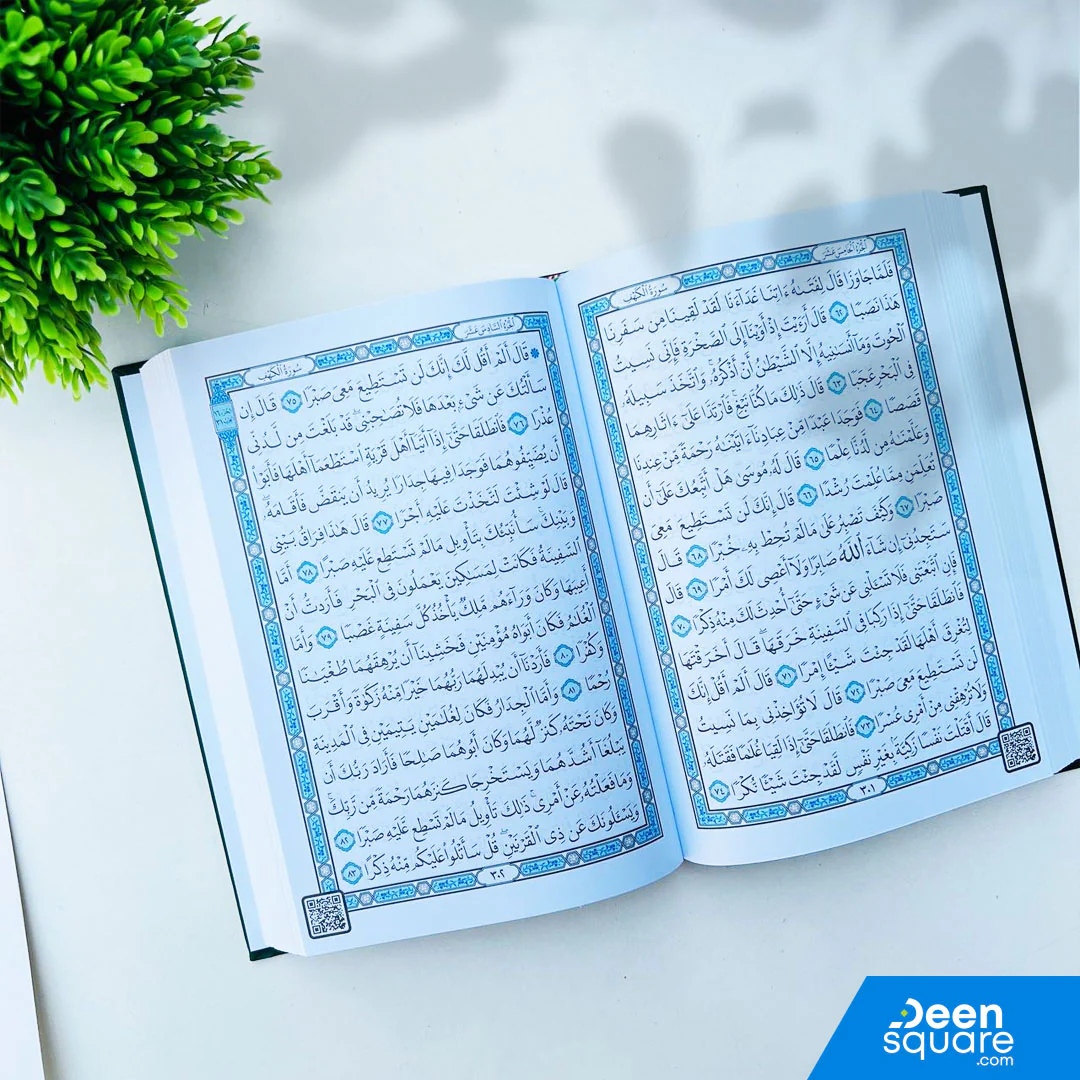 سُورَةُ الكَهْفِ
الجُزْءُ الخَامِسَ عَشَرَ
فَلَمَّا جَاوَزَا قَالَ لِفَتَىٰهُ ءَاتِنَا غَدَآءَنَا لَقَدْ لَقِينَا مِن سَفَرِنَا
هَٰذَا نَصَبًا ٦٢ قَالَ أَرَءَيْتَ إِذْ أَوَيْنَآ إِلَى ٱلصَّخْرَةِ فَإِنِّى نَسِيتُ
ٱلْحُوتَ وَمَآ أَنسَىٰنِيهُ إِلَّا ٱلشَّيْطَٰنُ أَنْ أَذْكُرَهُۥ وَٱتَّخَذَ سَبِيلَهُۥ
فِى ٱلْبَحْرِ عَجَبًا ٦٣ قَالَ ذَٰلِكَ مَا كُنَّا نَبْغِ فَٱرْتَدَّا عَلَىٰٓ ءَاثَارِهِمَا
قَصَصًا ٦٤ فَوَجَدَا عَبْدًا مِّنْ عِبَادِنَآ ءَاتَيْنَٰهُ رَحْمَةً مِّنْ عِندِنَا
وَعَلَّمْنَٰهُ مِن لَّدُنَّا عِلْمًا ٦٥ قَالَ لَهُۥ مُوسَىٰ هَلْ أَتَّبِعُكَ عَلَىٰٓ أَن
تُعَلِّمَنِ مِمَّا عُلِّمْتَ رُشْدًا ٦٦ قَالَ إِنَّكَ لَن تَسْتَطِيعَ مَعِىَ
صَبْرًا ٦٧ وَكَيْفَ تَصْبِرُ عَلَىٰ مَا لَمْ تُحِطْ بِهِۦ خُبْرًا ٦٨ قَالَ
سَتَجِدُنِىٓ إِن شَآءَ ٱللَّهُ صَابِرًا وَلَآ أَعْصِى لَكَ أَمْرًا ٦٩ قَالَ
فَإِنِ ٱتَّبَعْتَنِى فَلَا تَسْـَٔلْنِى عَن شَىْءٍ حَتَّىٰٓ أُحْدِثَ لَكَ مِنْهُ ذِكْرًا ٧٠
فَٱنطَلَقَا حَتَّىٰٓ إِذَا رَكِبَا فِى ٱلسَّفِينَةِ خَرَقَهَا ۖ قَالَ أَخَرَقْتَهَا
لِتُغْرِقَ أَهْلَهَا لَقَدْ جِئْتَ شَيْـًٔا إِمْرًا ٧١ قَالَ أَلَمْ أَقُلْ إِنَّكَ
لَن تَسْتَطِيعَ مَعِىَ صَبْرًا ٧٢ قَالَ لَا تُؤَاخِذْنِى بِمَا نَسِيتُ
وَلَا تُرْهِقْنِى مِنْ أَمْرِى عُسْرًا ٧٣ فَٱنطَلَقَا حَتَّىٰٓ إِذَا لَقِيَا غُلَٰمًا فَقَتَلَهُۥ
قَالَ أَقَتَلْتَ نَفْسًا زَكِيَّةًۢ بِغَيْرِ نَفْسٍ لَّقَدْ جِئْتَ شَيْـًٔا نُّكْرًا ٧٤
٣٠١
الجُزْءُ السَّادِسَ عَشَرَ
سُورَةُ الكَهْفِ
۞ قَالَ أَلَمْ أَقُل لَّكَ إِنَّكَ لَن تَسْتَطِيعَ مَعِىَ صَبْرًا ٧٥ قَالَ إِن
سَأَلْتُكَ عَن شَىْءٍۭ بَعْدَهَا فَلَا تُصَٰحِبْنِى ۖ قَدْ بَلَغْتَ مِن لَّدُنِّى
عُذْرًا ٧٦ فَٱنطَلَقَا حَتَّىٰٓ إِذَآ أَتَيَآ أَهْلَ قَرْيَةٍ ٱسْتَطْعَمَآ أَهْلَهَا فَأَبَوْا۟
أَن يُضَيِّفُوهُمَا فَوَجَدَا فِيهَا جِدَارًا يُرِيدُ أَن يَنقَضَّ فَأَقَامَهُۥ ۖ
قَالَ لَوْ شِئْتَ لَتَّخَذْتَ عَلَيْهِ أَجْرًا ٧٧ قَالَ هَٰذَا فِرَاقُ بَيْنِى
وَبَيْنِكَ ۚ سَأُنَبِّئُكَ بِتَأْوِيلِ مَا لَمْ تَسْتَطِع عَّلَيْهِ صَبْرًا ٧٨ أَمَّا
ٱلسَّفِينَةُ فَكَانَتْ لِمَسَٰكِينَ يَعْمَلُونَ فِى ٱلْبَحْرِ فَأَرَدتُّ أَنْ
أَعِيبَهَا وَكَانَ وَرَآءَهُم مَّلِكٌ يَأْخُذُ كُلَّ سَفِينَةٍ غَصْبًا ٧٩ وَأَمَّا
ٱلْغُلَٰمُ فَكَانَ أَبَوَاهُ مُؤْمِنَيْنِ فَخَشِينَآ أَن يُرْهِقَهُمَا طُغْيَٰنًا
وَكُفْرًا ٨٠ فَأَرَدْنَآ أَن يُبْدِلَهُمَا رَبُّهُمَا خَيْرًا مِّنْهُ زَكَوٰةً وَأَقْرَبَ
رُحْمًا ٨١ وَأَمَّا ٱلْجِدَارُ فَكَانَ لِغُلَٰمَيْنِ يَتِيمَيْنِ فِى ٱلْمَدِينَةِ
وَكَانَ تَحْتَهُۥ كَنزٌ لَّهُمَا وَكَانَ أَبُوهُمَا صَٰلِحًا فَأَرَادَ رَبُّكَ أَن
يَبْلُغَآ أَشُدَّهُمَا وَيَسْتَخْرِجَا كَنزَهُمَا رَحْمَةً مِّن رَّبِّكَ ۚ
وَمَا فَعَلْتُهُۥ عَنْ أَمْرِى ۚ ذَٰلِكَ تَأْوِيلُ مَا لَمْ تَسْطِع عَّلَيْهِ صَبْرًا ٨٢
وَيَسْـَٔلُونَكَ عَن ذِى ٱلْقَرْنَيْنِ ۖ قُلْ سَأَتْلُوا۟ عَلَيْكُم مِّنْهُ ذِكْرًا ٨٣
٣٠٢
Deen
square
.com